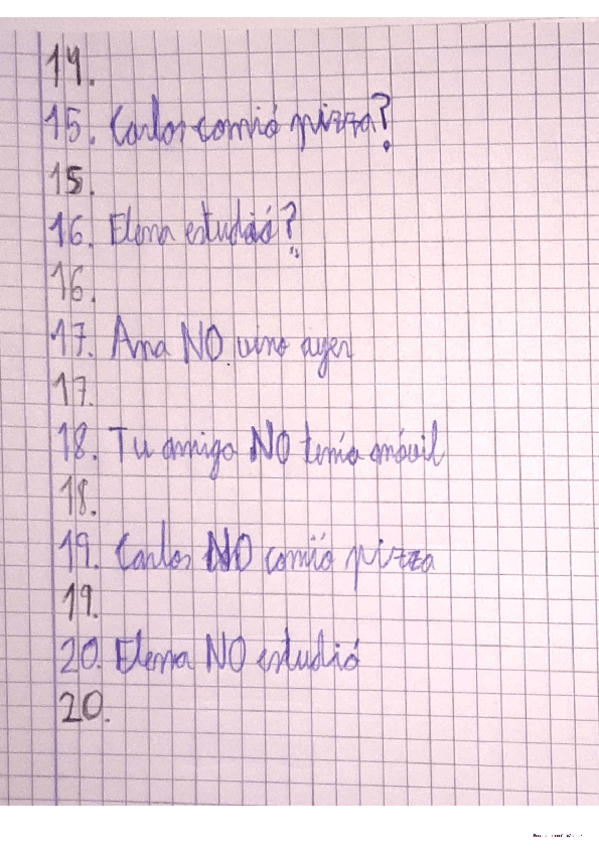 14.
15. Carlos comió pizza?
15.
16. Elena estudió?
16.
17. Ana NO vino ayer
17.
18. Tu amigo NO tenía móvil
18.
19. Carlos NO comió pizza
19.
20. Elena NO estudió
20.